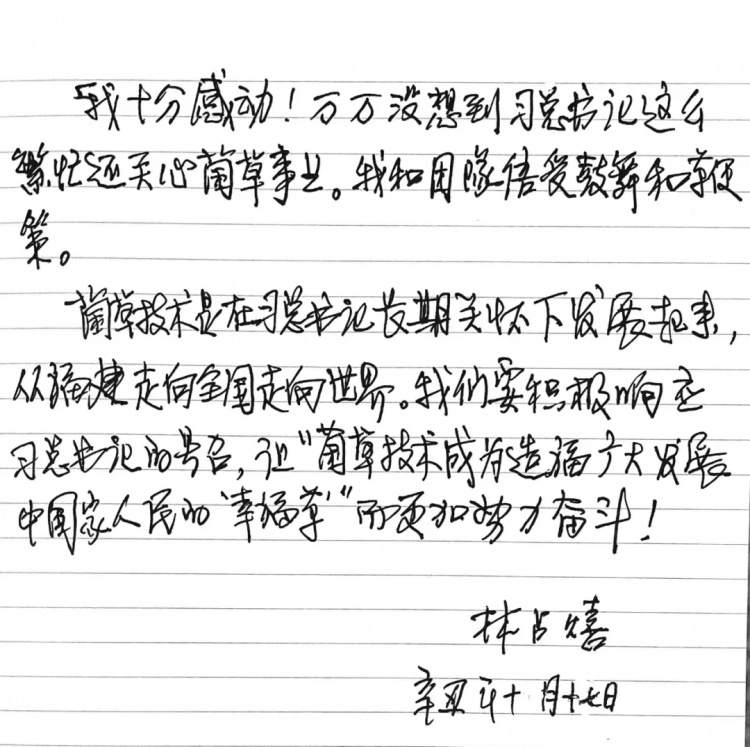 我十分感动！万万没想到习总书记这么
繁忙还关心菌草事业。我和团队倍受鼓舞和鞭
策。
菌草技术是在习总书记长期关怀下发展起来，
从福建走向全国走向世界。我们要积极响应
习总书记的号召，让“菌草技术成为造福广大发展
中国家人民的‘幸福草’”而更加努力奋斗！
林占熺
辛丑年十月十七日